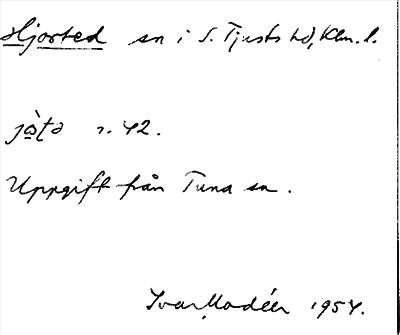 Hjorted sn i S. Tjusts hd, Klm. l.
jò̤ta s. 42.
Uppgift från Tuna sn.
Ivar Modéer 1954.